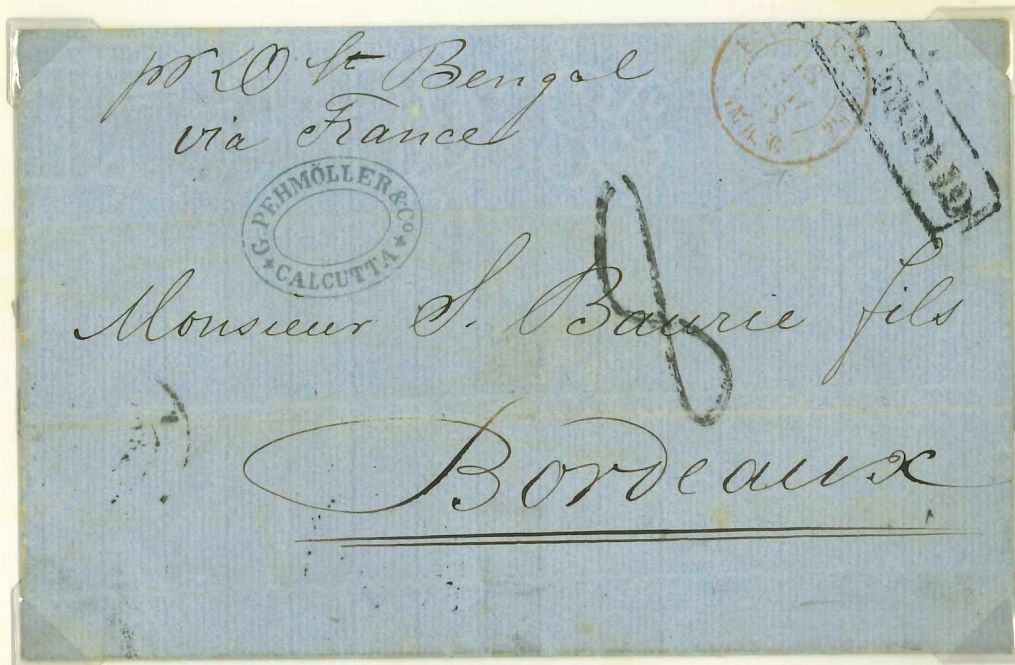 pr St Bengal
via France
G. PEHMÖLLER & Co.
CALCUTTA
8
Monsieur S. Baurie fils
Bordeaux